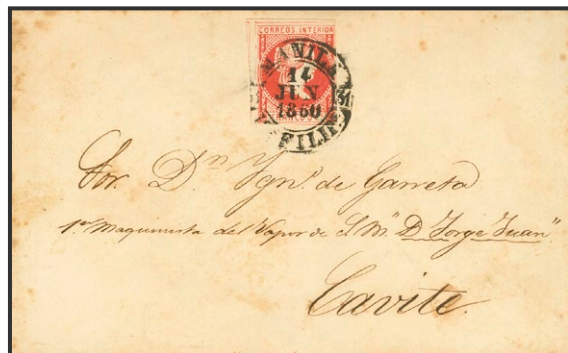 CORREOS INTERIOR
MANILA
14
JUN
1860
FILIP
Sor. Dn Ygno. de Garreta
1er Maquinista del Vapor de S. M. "D. Jorge Juan"
Cavite.